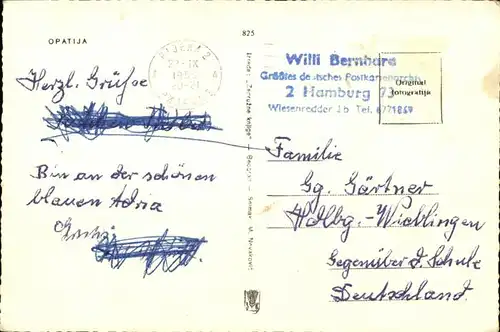 OPATIJA
825
RIJEKA 2
Willi Bernhard
Größtes deutsches Postkartenarchiv
2 Hamburg 73
Wiesenredder 2b Tel. 6771869
Original
fotografija
Herzl. Grüße
Bin an der schönen
blauen Adria
Familie
Gg. Gärtner
Hdlbg.-Wieblingen
Gegenüber d. Schule
Deutschland.